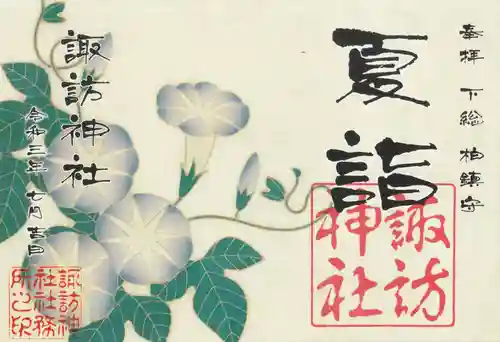 奉拝 下総 柏鎮守
夏詣
諏訪神社
諏訪神社
令和三年 七月 吉日
諏訪神社社務所之印